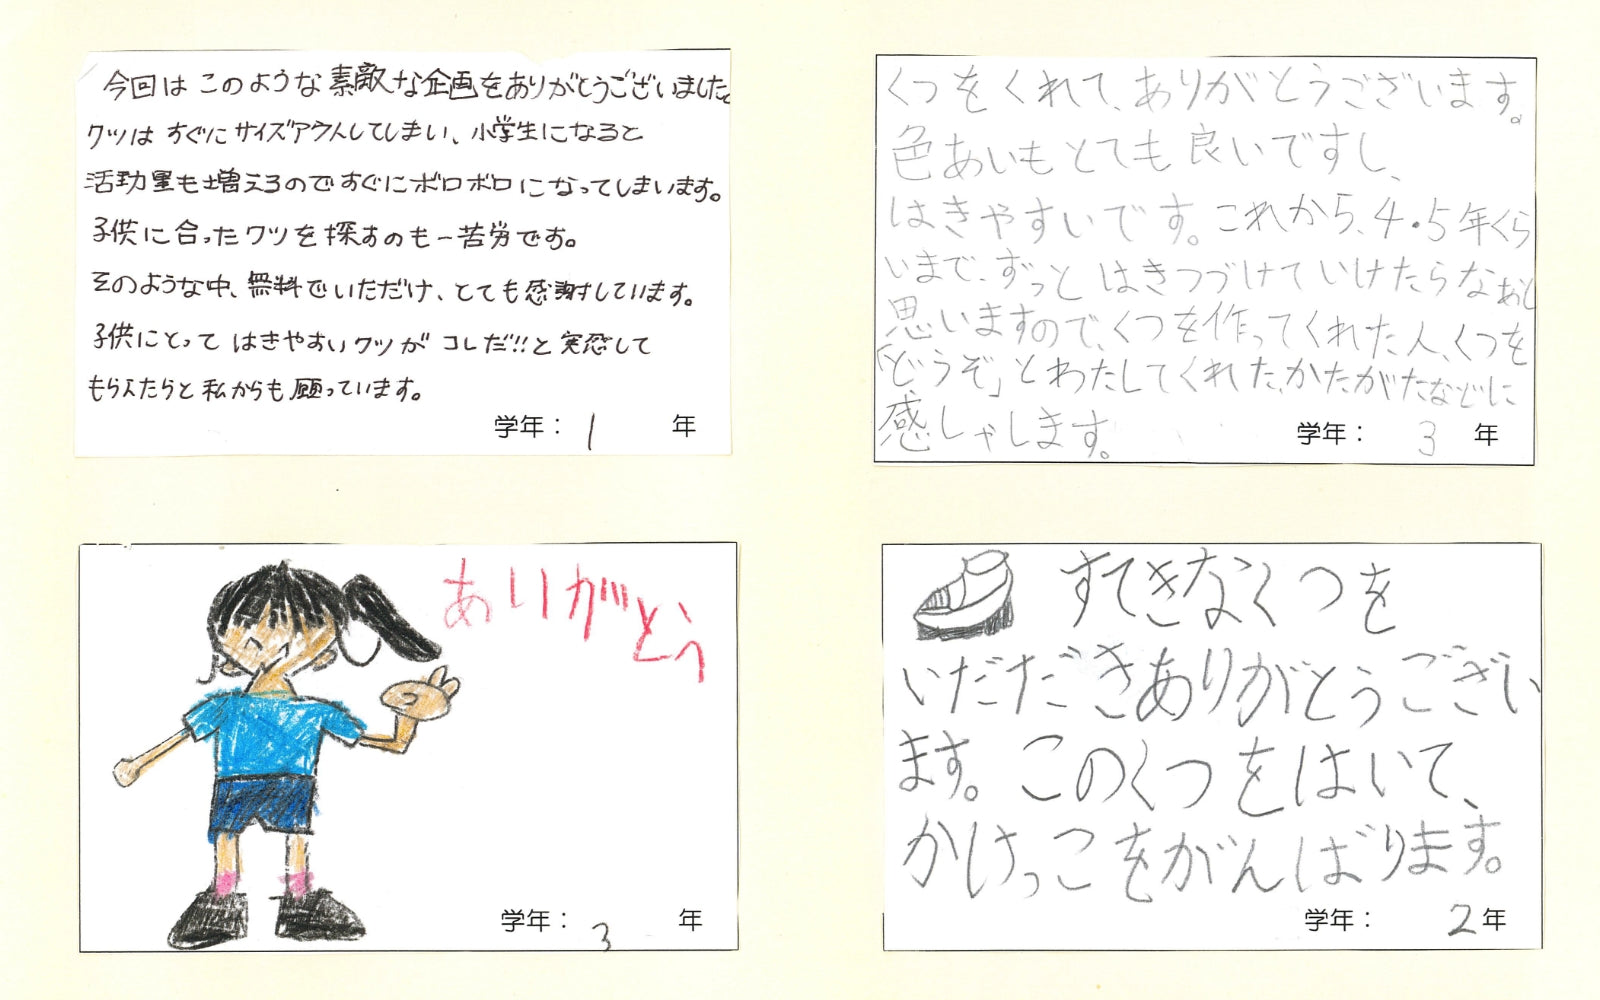 今回は このような素敵な企画をありがとうございました。
クツは すぐに サイズアウトしてしまい、小学生になると
活動量も増えるのですぐにボロボロになってしまいます。
子供に合ったクツを探すのも一苦労です。
そのような中、無料でいただけ、とても感謝しています。
子供にとって はきやすいクツが コレだ!!と実感して
もらえたらと私からも願っています。
学年： 1 年
くつをくれて、ありがとうございます。
色あいもとても良いですし、
はきやすいです。これから、4・5年くら
いまで、ずっと はきつづけていけたらなぁと
思いますので、くつを作ってくれた人、くつを
「どうぞ」とわたしてくれた、かたがたなどに
感しゃします。
学年： 3 年
ありがとう
学年： 3 年
すてきなくつを
いだだきありがとうござい
ます。このくつをはいて、
かけっこをがんばります。
学年： 2 年